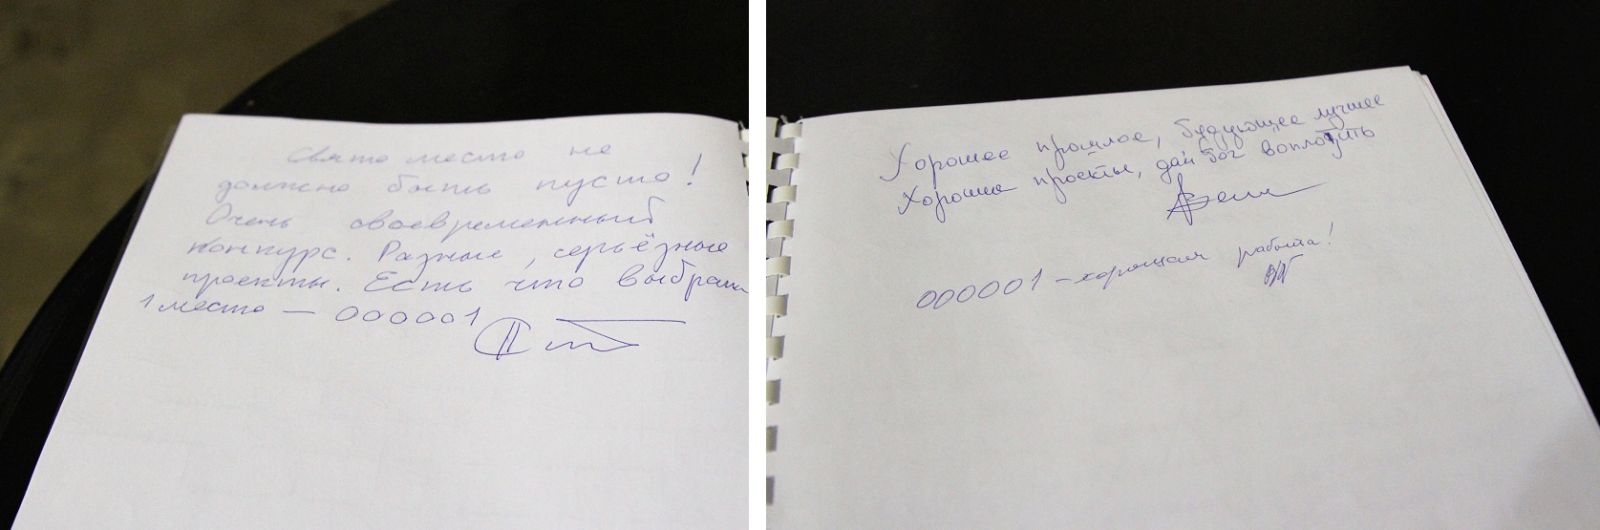 Свято место не
должно быть пусто!
Очень своевременный
конкурс. Разные, серьёзные
проекты. Есть что выбрать
1 место — 000001
Хорошее прошлое, будующее лучшее
Хорошие проекты, дай Бог воплотить
000001 – хорошая работа!